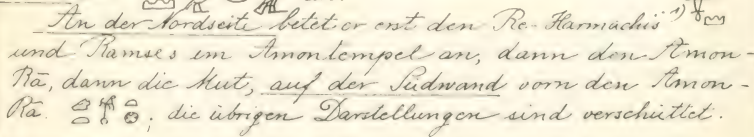 An der Nordseite betet er erst den Re-Harmachis 1)
und Ramses im Amontempel an, dann den Amon-
Rā, dann die Mut, auf der Südwand vorn den Amon-
Rā. ; die übrigen Darstellungen sind verschüttet.